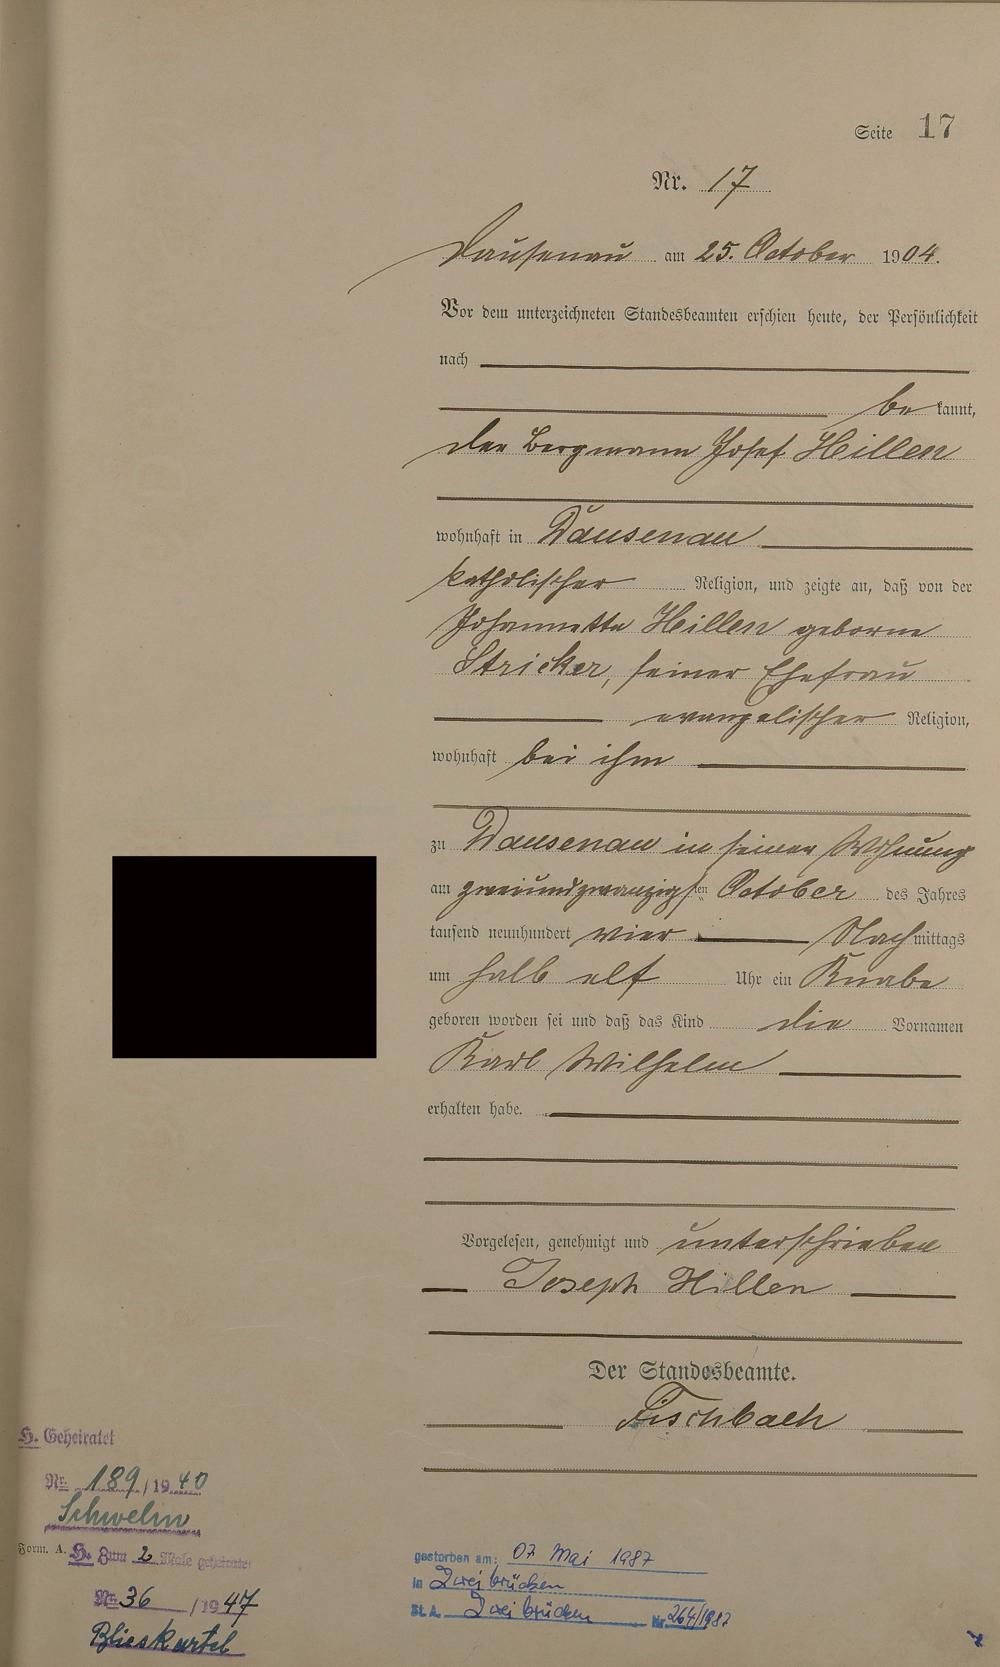 Seite 17
Nr. 17
Dausenau am 25. October 1904.
Vor dem unterzeichneten Standesbeamten erschien heute, der Persönlichkeit
nach
be kannt,
der Bergmann Josef Hillen
wohnhaft in Dausenau
katholischer Religion, und zeigte an, daß von der
Johannette Hillen geborne
Stricker, seiner Ehefrau
evangelischer Religion,
wohnhaft bei ihm
zu Dausenau in seiner Wohnung
am zweiundzwanzigsten October des Jahres
tausend neunhundert vier Nachmittags
um halb elf Uhr ein Knabe
geboren worden sei und daß das Kind die Vornamen
Karl Wilhelm
erhalten habe.
Vorgelesen, genehmigt und unterschrieben
Joseph Hillen
Der Standesbeamte.
Fischbach
H. Geheiratet
Nr. 189/1940
Schwelm
Form. A. H. Zum 2 Male geheiratet
Nr. 36/1947
Blieskastel
gestorben am: 07 Mai 1987
in Zweibrücken
St. A. Zweibrücken Nr 264/1987